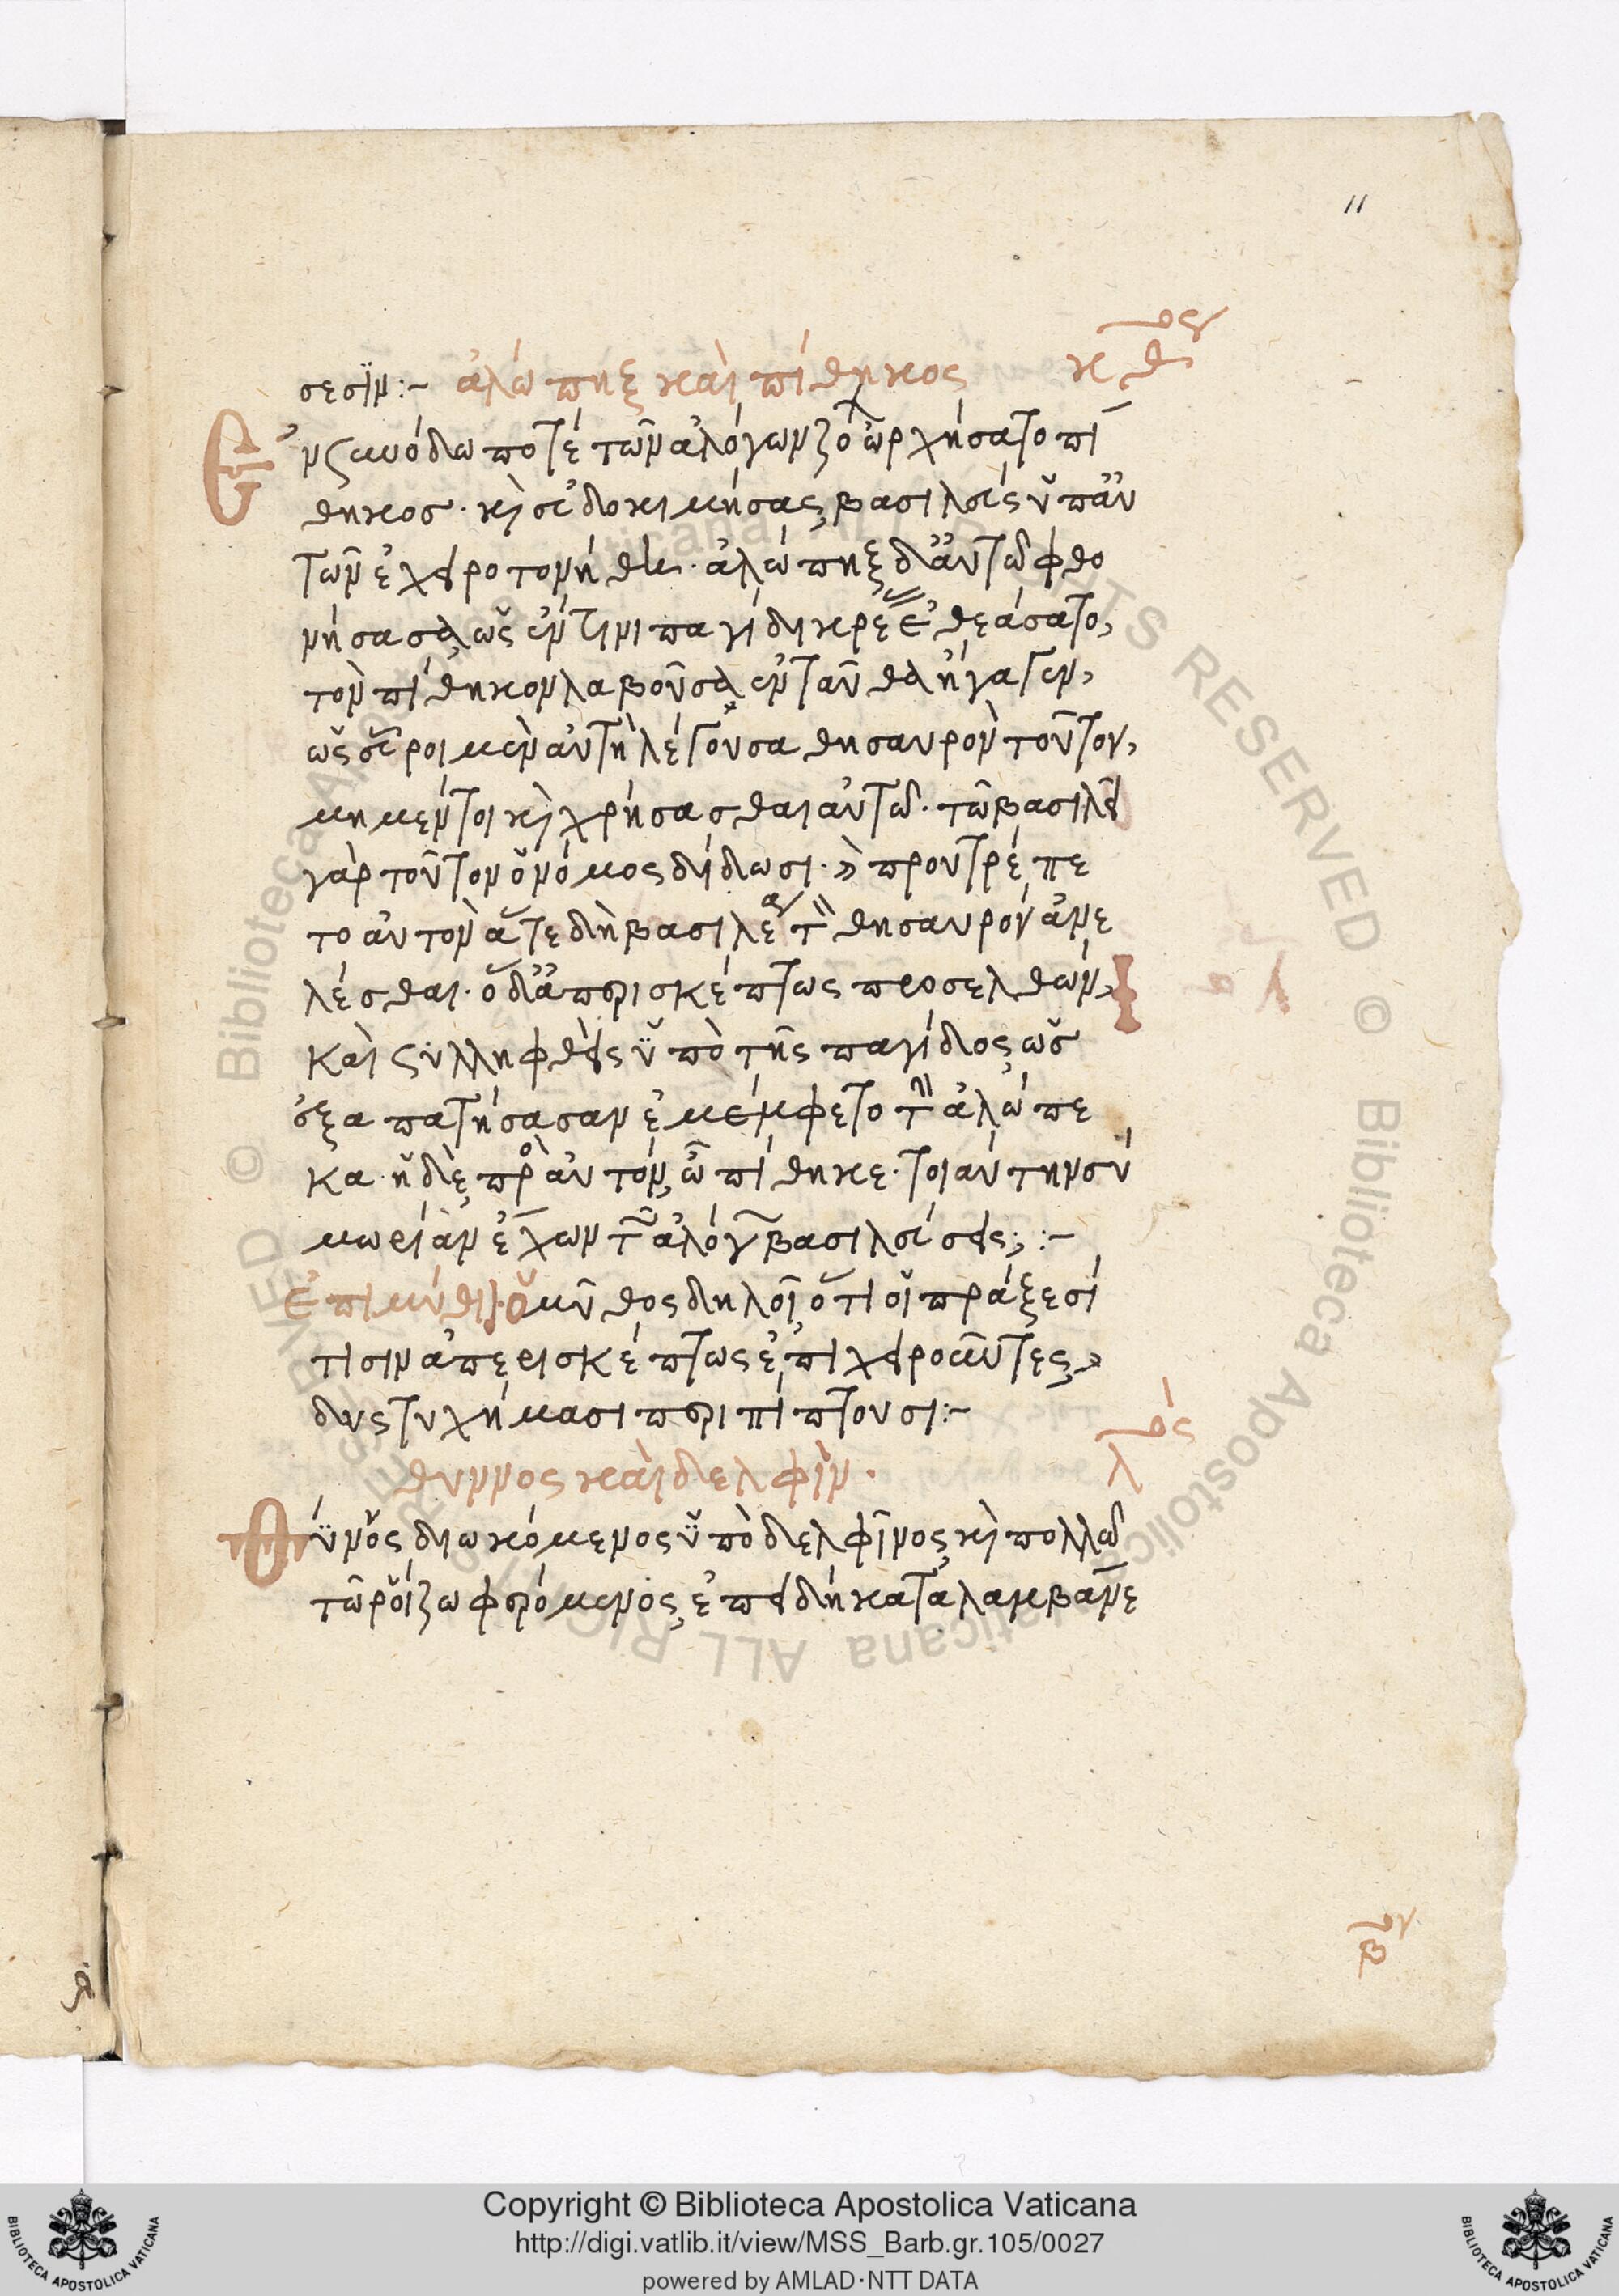 11
σεσϊν:- ἀλώπηξ καὶ πίθηκος κθος
Ἐν συνόδω ποτὲ τῶν ἀλόγων ζό ὠρχήσατο πί
θηκος· κὶ εὐδοκιμήσας, βασιλεὺς ὑπ' αὐ
τῶν ἐχειροτονήθη· ἀλώπηξ δ' αὐτῶ φθο
νήσασα, ὡς ἔν τινι παγίδι κρέ ἐθεάσατο,
τὸν πίθηκον λαβοῦσα, ἐνταῦθα ἤγαγεν,
ὡς εὕροι μὲν αὐτὴ λέγουσα θησαυρὸν τοῦτον,
μὴ μέντοι κὶ χρήσασθαι αὐτῶ· τῶ βασιλεῖ
γὰρ τοῦτον ὁ νόμος δίδωσι· » προὐτρέπε
το αὐτὸν ἅτε δὴ βασιλέα τ θησαυρὸν ἀνε
λέσθαι· ὁ δ' ἀπερισκέπτως προσελθὼν,
καὶ συλληφθεὶς ὑπὸ τῆς παγίδος, ὡς
ἐξαπατήσασαν ἐμέμφετο τ ἀλώπε
κα· ἡ δὲ πρὸ αὐτόν, ὦ πίθηκε· τοιαύτην σὺ
μωρίαν ἔχων τ ἀλόγ βασιλεύσεις; :-
Ἐπιμύθι· Ὁ μῦθος δηλοῖ, ὅτι οἱ πράξεσί
τισιν ἀπερισκέπτως ἐπιχειροῦντες,
δυστυχήμασι περιπίπτουσι:-
θύννος καὶ δελφὶν· λος
Θύνος διωκόμενος ὑπὸ δελφῖνος, κὶ πολλῶ
τῶ ῥοίζω φερόμενος, ἐπειδὴ καταλαμβάνε
βον
Copyright © Biblioteca Apostolica Vaticana
http://digi.vatlib.it/view/MSS_Barb.gr.105/0027
powered by AMLAD·NTT DATA